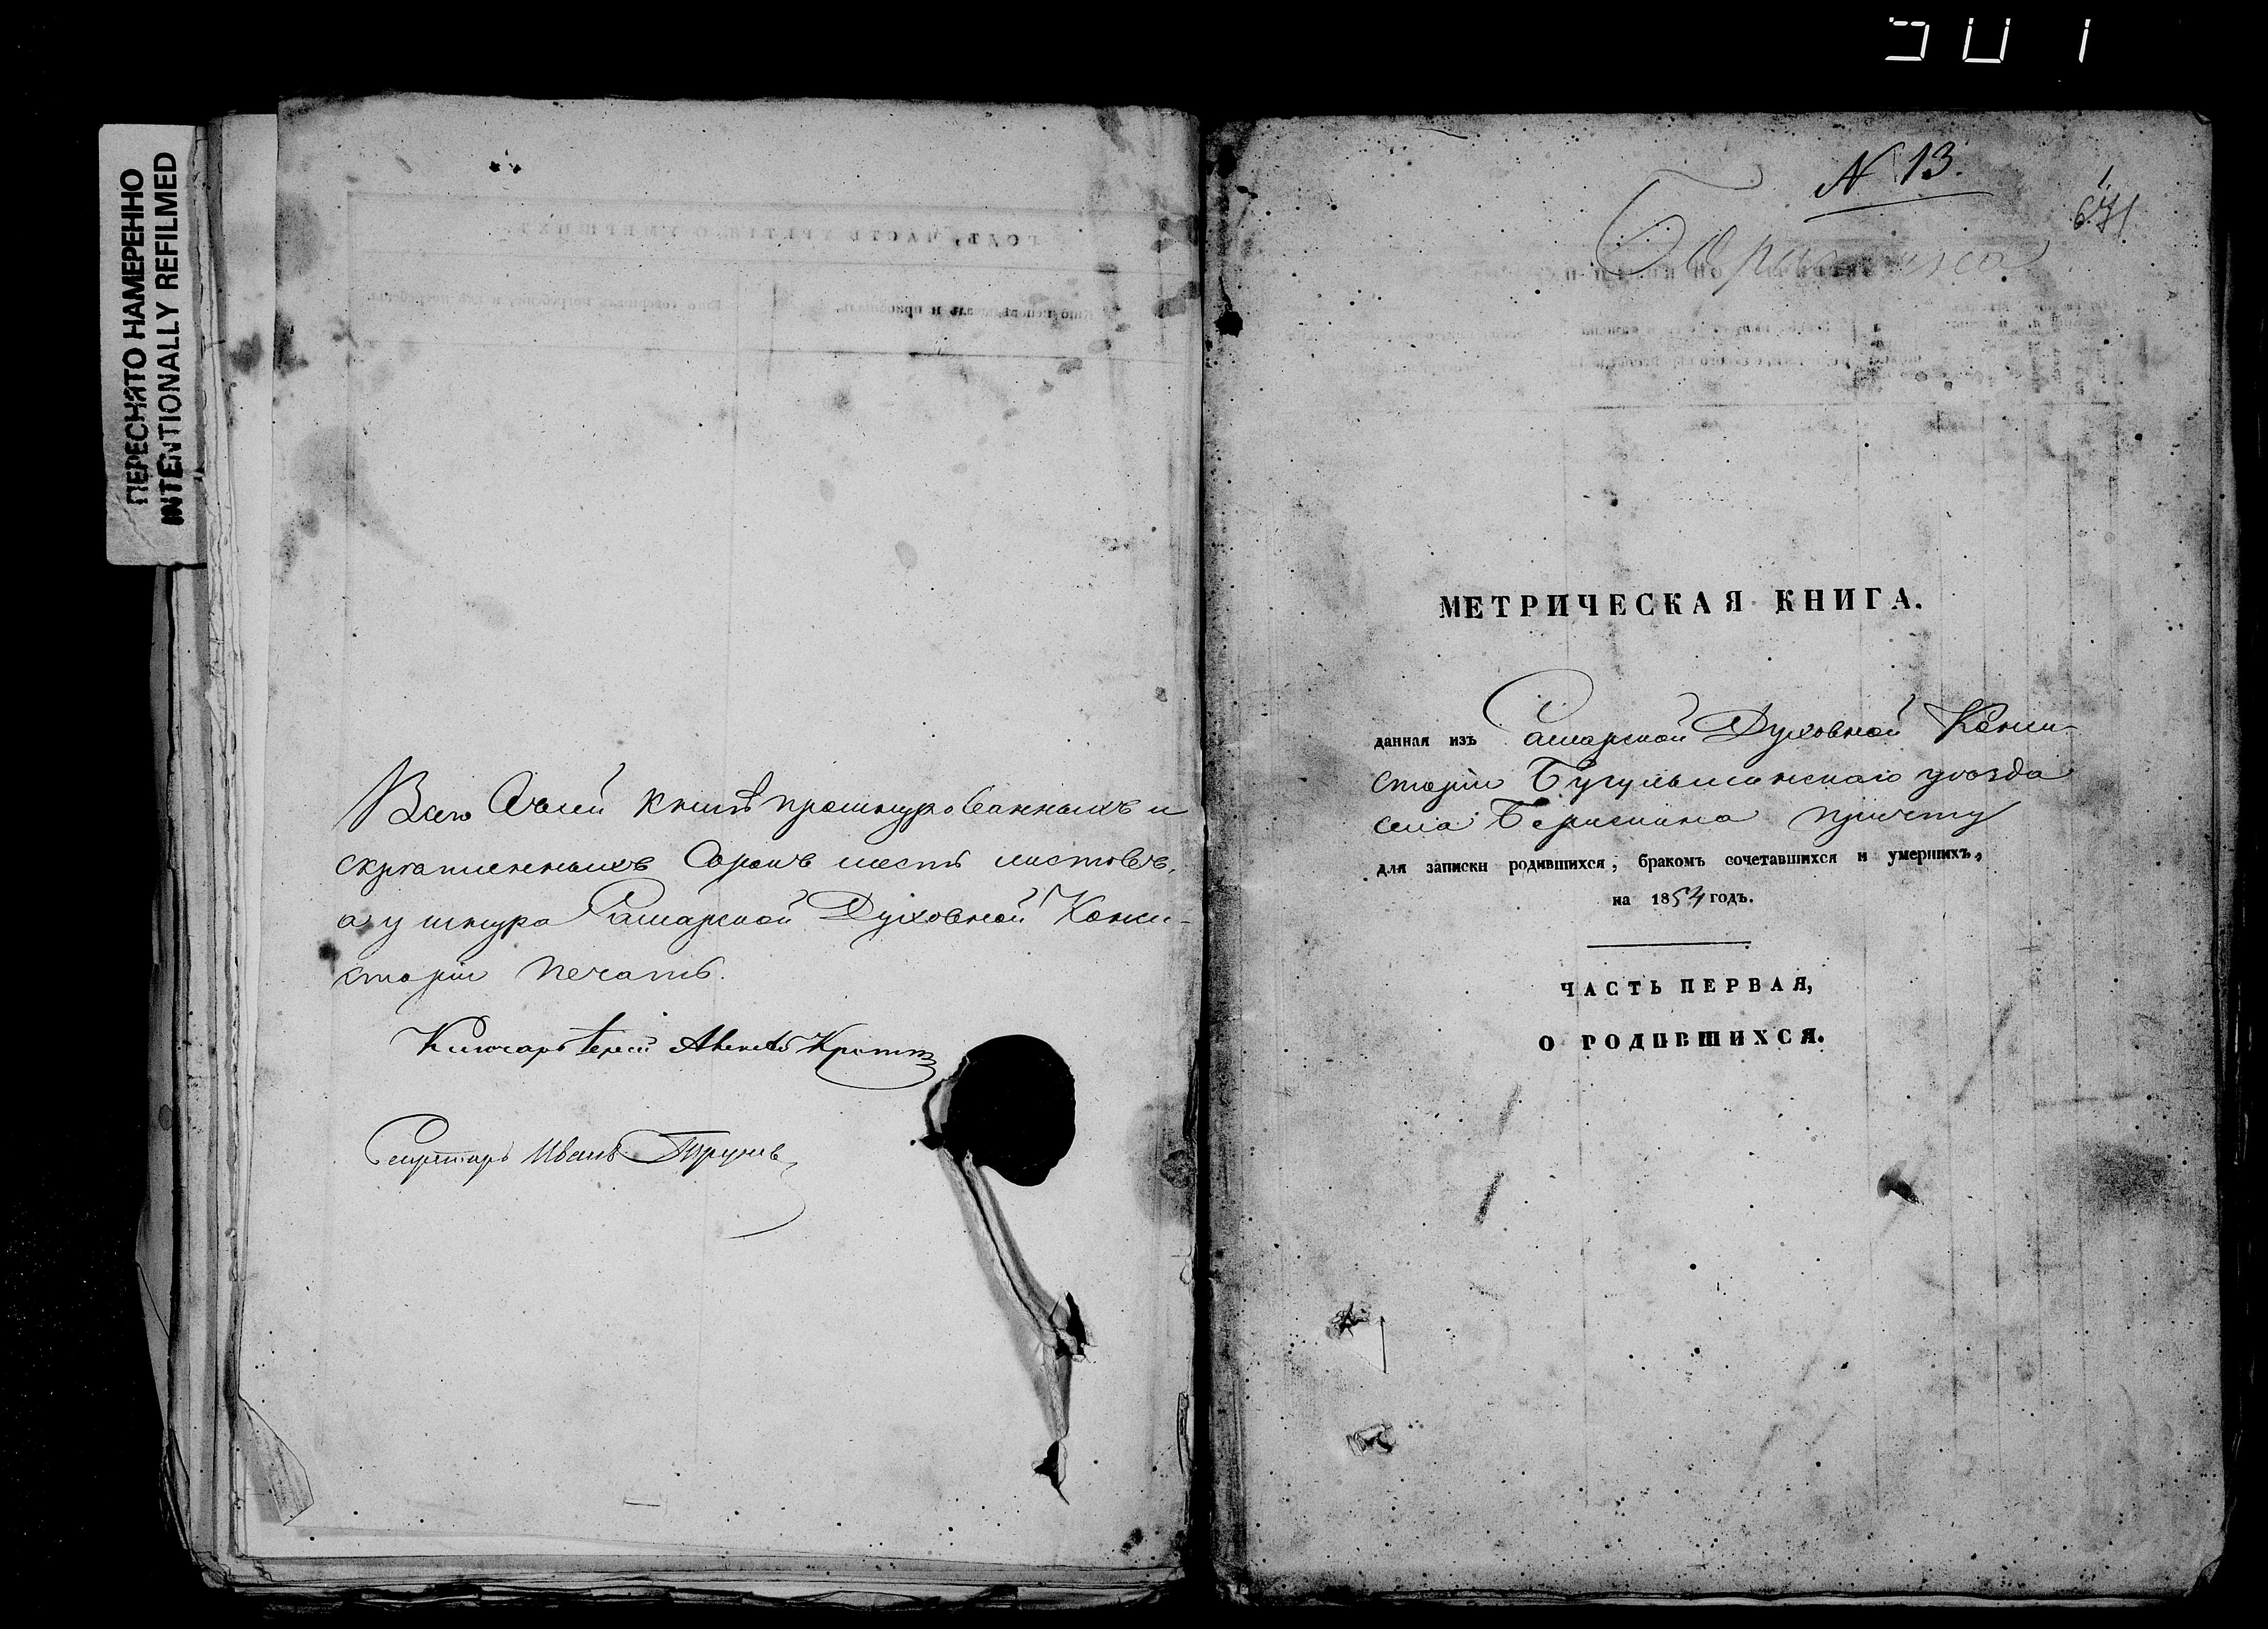 501
ПЕРЕСНЯТО НАМЕРЕННО
INTENTIONALLY REFILMED
Всего въ сей книгѣ прошнурованныхъ и
скрѣпленныхъ Сорокъ шесть листовъ,
а у шнура Самарской Духовной Конси-
сторіи печать.
Ключарь Іерей
Секретарь Иванъ
N 13.
МЕТРИЧЕСКАЯ КНИГА.
данная изъ Самарской Духовной Конси-
сторіи Бугульминскаго уѣзда
села причту
для записки родившихся, бракомъ сочетавшихся и умершихъ,
на 1854 годъ.
ЧАСТЬ ПЕРВАЯ,
О РОДИВШИХСЯ.